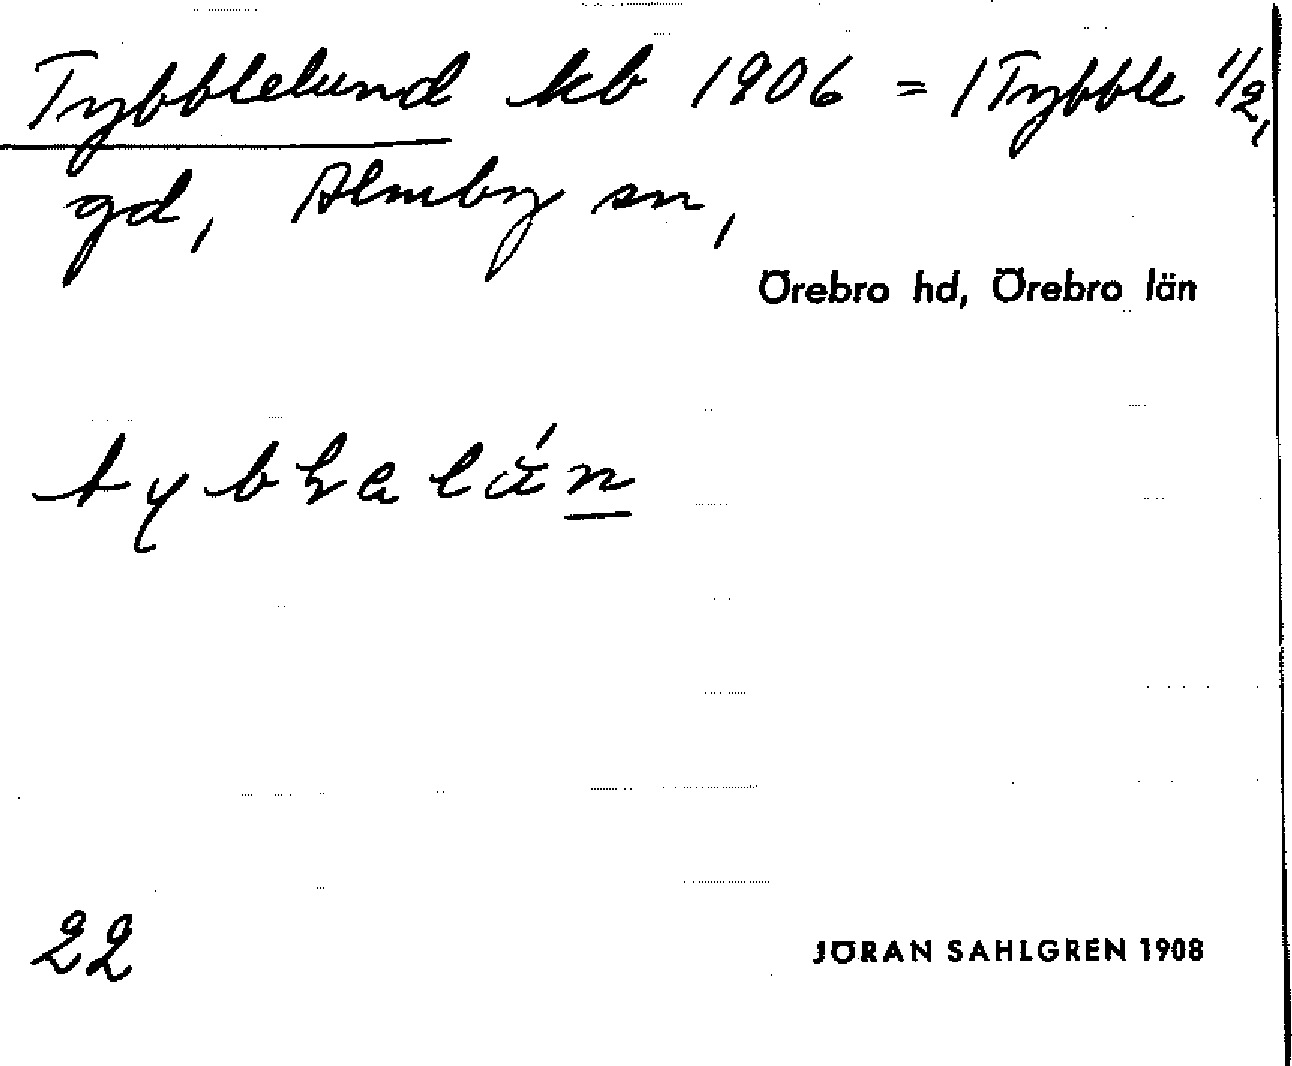 Tybblelund kb 1906 = / Tybble 1/2,
gd, Almby sn,
Örebro hd, Örebro län
22
JÖRAN SAHLGREN 1908